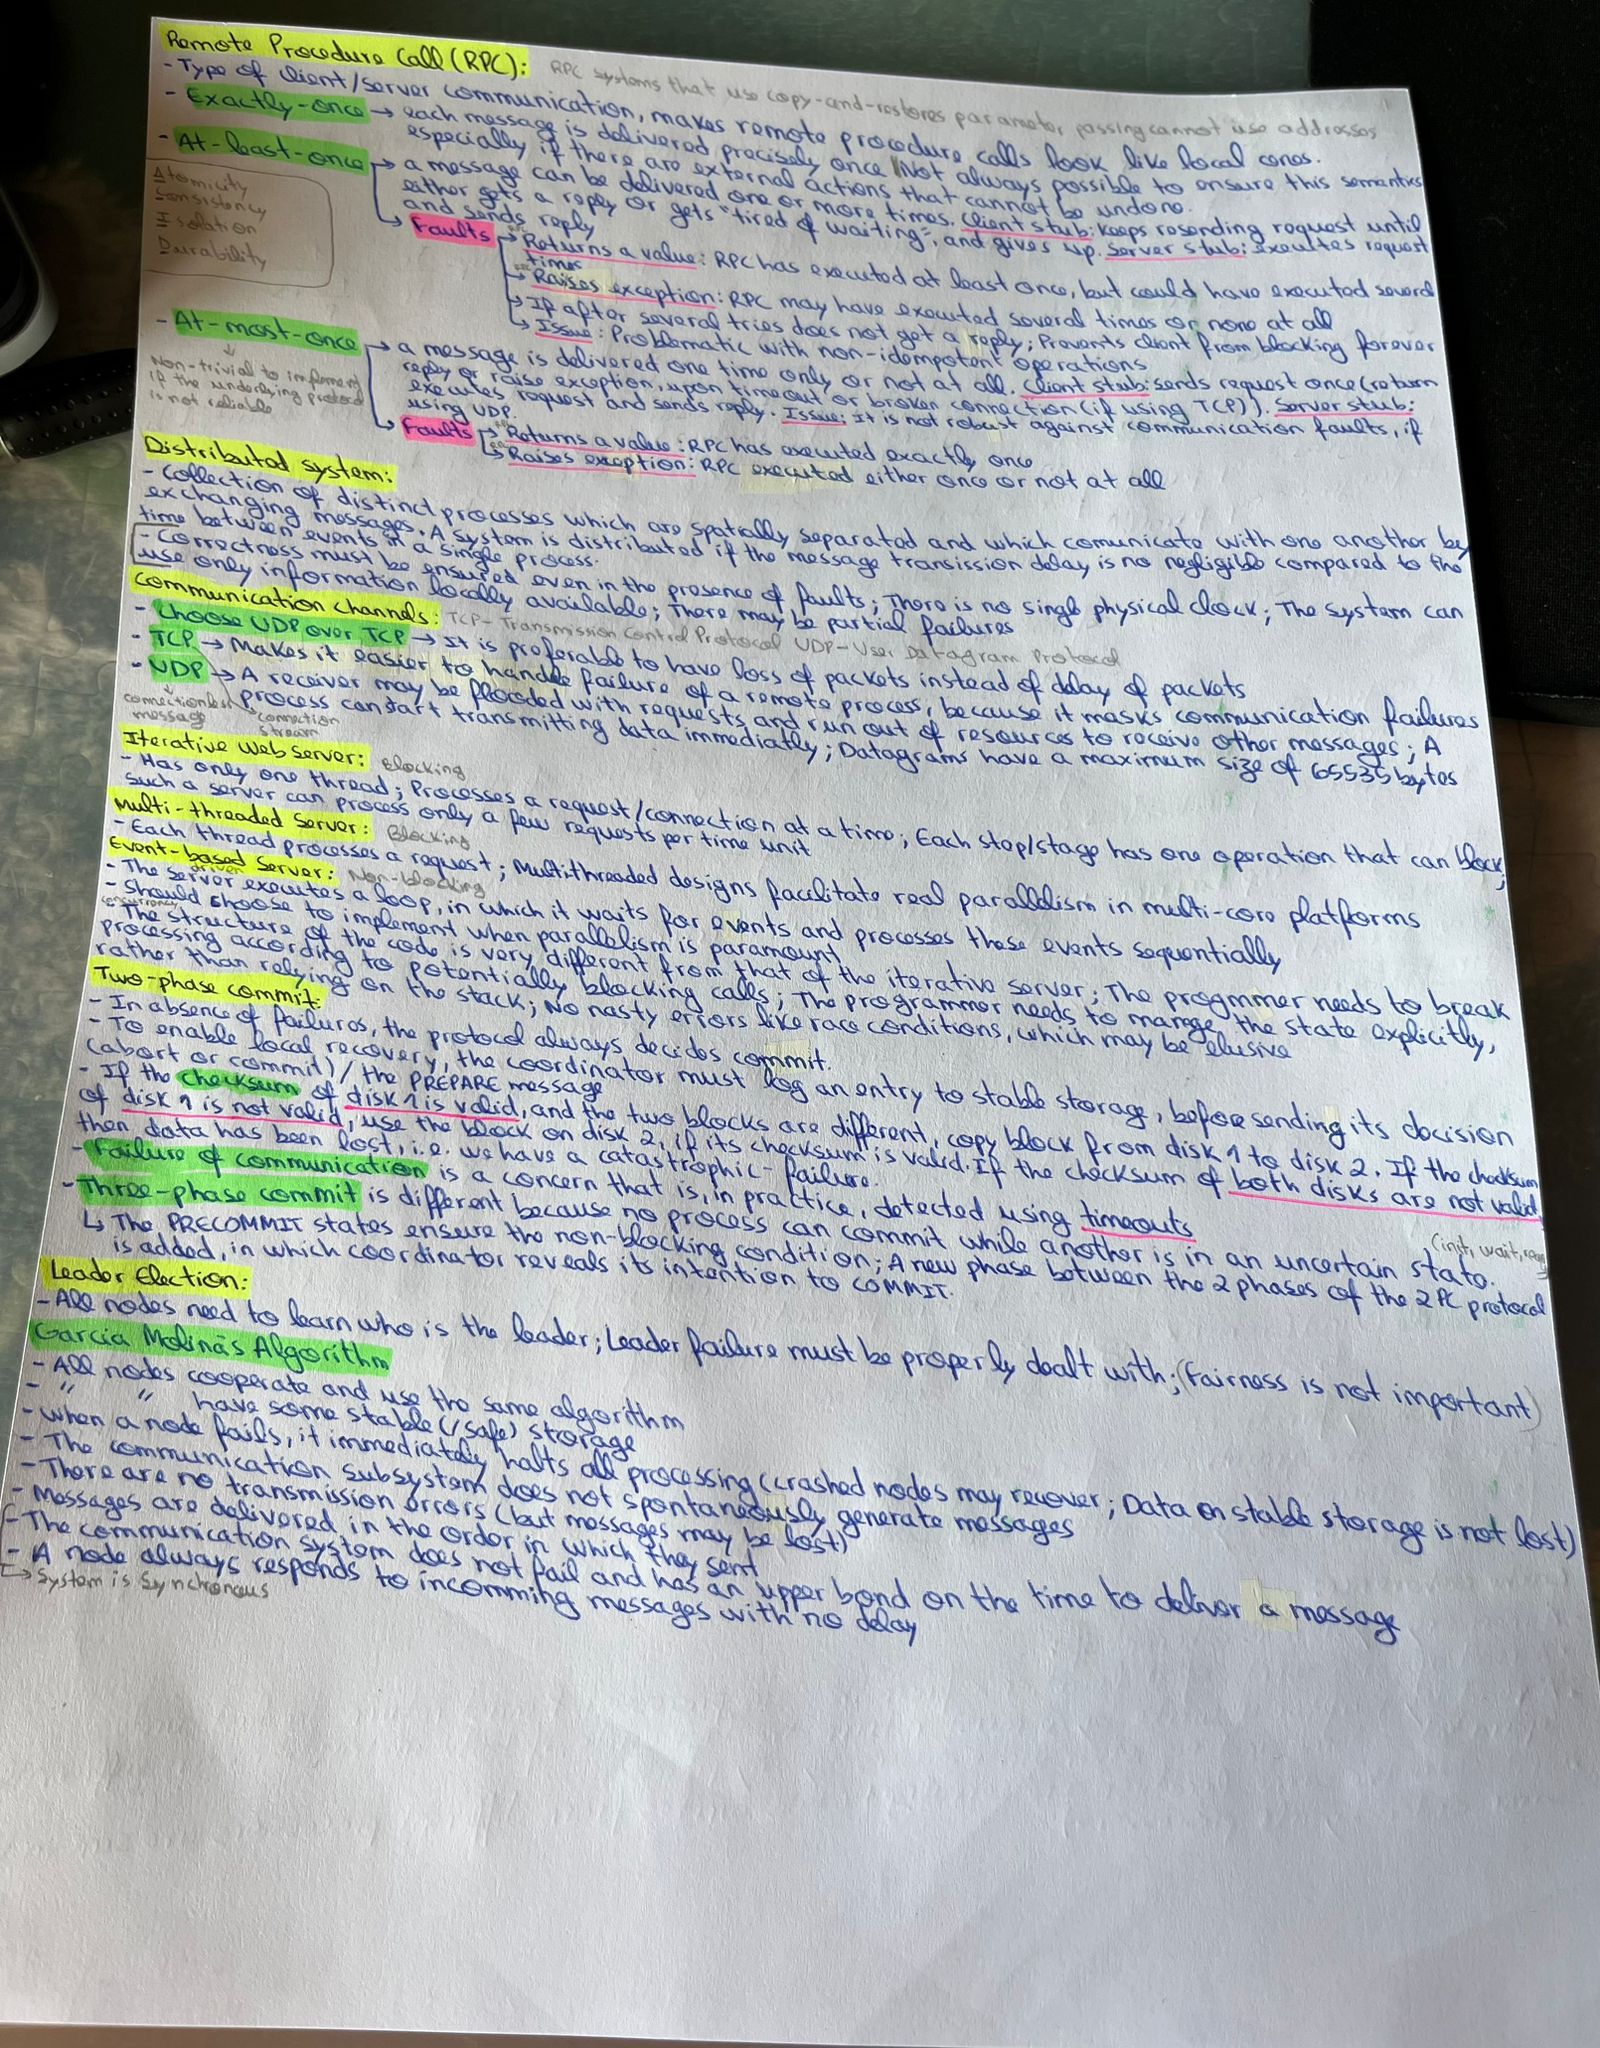 Remote Procedure Call (RPC): RPC systems that use copy-and-restores parameter passing cannot use addresses
- Type of client/server communication, makes remote procedure calls look like local ones.
- Exactly-once → each message is delivered precisely once. Not always possible to ensure this semantics
especially if there are external actions that cannot be undone.
- At-least-once → a message can be delivered one or more times. Client stub: keeps resending request until
either gets a reply or gets "tired of waiting", and gives up. Server stub: executes request
and sends reply
Atomicity
Consistency
Isolation
Durability
Faults → Returns a value: RPC has executed at least once, but could have executed several
times
→ Raises exception: RPC may have executed several times or none at all
→ If after several tries does not get a reply; Prevents client from blocking forever
→ Issue: Problematic with non-idempotent operations
- At-most-once → a message is delivered one time only or not at all. Client stub: sends request once (return
reply or raise exception, upon timeout or broken connection (if using TCP)). Server stub:
executes request and sends reply. Issue: It is not robust against communication faults, if
using UDP.
Non-trivial to implement
if the underlying protocol
is not reliable
Faults → Returns a value: RPC has executed exactly once
→ Raises exception: RPC executed either once or not at all
Distributed system:
- Collection of distinct processes which are spatially separated and which comunicate with one another by
exchanging messages. A system is distributed if the message transission delay is no negligible compared to the
time between events in a single process.
- Correctness must be ensured even in the presence of faults; There is no single physical clock; The system can
use only information locally available; There may be partial failures
Communication channels: TCP - Transmission Control Protocol UDP - User Datagram Protocol
- Choose UDP over TCP → It is preferable to have loss of packets instead of delay of packets
- TCP → Makes it easier to handle failure of a remote process, because it masks communication failures
- UDP → A receiver may be flooded with requests and run out of resources to receive other messages; A
process can start transmitting data immediatly; Datagrams have a maximum size of 65535 bytes
connectionless
message
connection
stream
Iterative web server: Blocking
- Has only one thread; Processes a request/connection at a time; Each step/stage has one operation that can block;
such a server can process only a few requests per time unit
Multi-threaded Server: Blocking
- Each thread processes a request; Multithreaded designs facilitate real parallelism in multi-core platforms
Event-based Server: Non-blocking
driven
- The server executes a loop, in which it waits for events and processes these events sequentially
- Should choose to implement when parallelism is paramount
concurrency
- The structure of the code is very different from that of the iterative server; The progmmer needs to break
processing according to potentially blocking calls; The programmer needs to manage the state explicitly,
rather than relying on the stack; No nasty errors like race conditions, which may be elusive
Two-phase commit:
- In absence of failures, the protocol always decides commit.
- To enable local recovery, the coordinator must log an entry to stable storage, before sending its decision
(abort or commit) / the PREPARE message
- If the checksum of disk 1 is valid, and the two blocks are different, copy block from disk 1 to disk 2. If the checksum
of disk 1 is not valid, use the block on disk 2, if its checksum is valid. If the checksum of both disks are not valid,
then data has been lost, i.e. we have a catastrophic failure.
- Failure of communication is a concern that is, in practice, detected using timeouts
- Three-phase commit is different because no process can commit while another is in an uncertain state.
(init, wait,
↳ The PRECOMMIT states ensure the non-blocking condition; A new phase between the 2 phases of the 2PC protocol
is added, in which coordinator reveals its intention to COMMIT.
Leader Election:
- All nodes need to learn who is the leader; Leader failure must be properly dealt with; (Fairness is not important)
Garcia Molina's Algorithm
- All nodes cooperate and use the same algorithm
- " " have some stable (/safe) storage
- When a node fails, it immediately halts all processing (crashed nodes may recover; Data on stable storage is not lost)
- The communication subsystem does not spontaneously generate messages
- There are no transmission errors (but messages may be lost)
- Messages are delivered in the order in which they sent
- The communication system does not fail and has an upper bond on the time to deliver a message
- A node always responds to incomming messages with no delay
↳ System is Synchronous